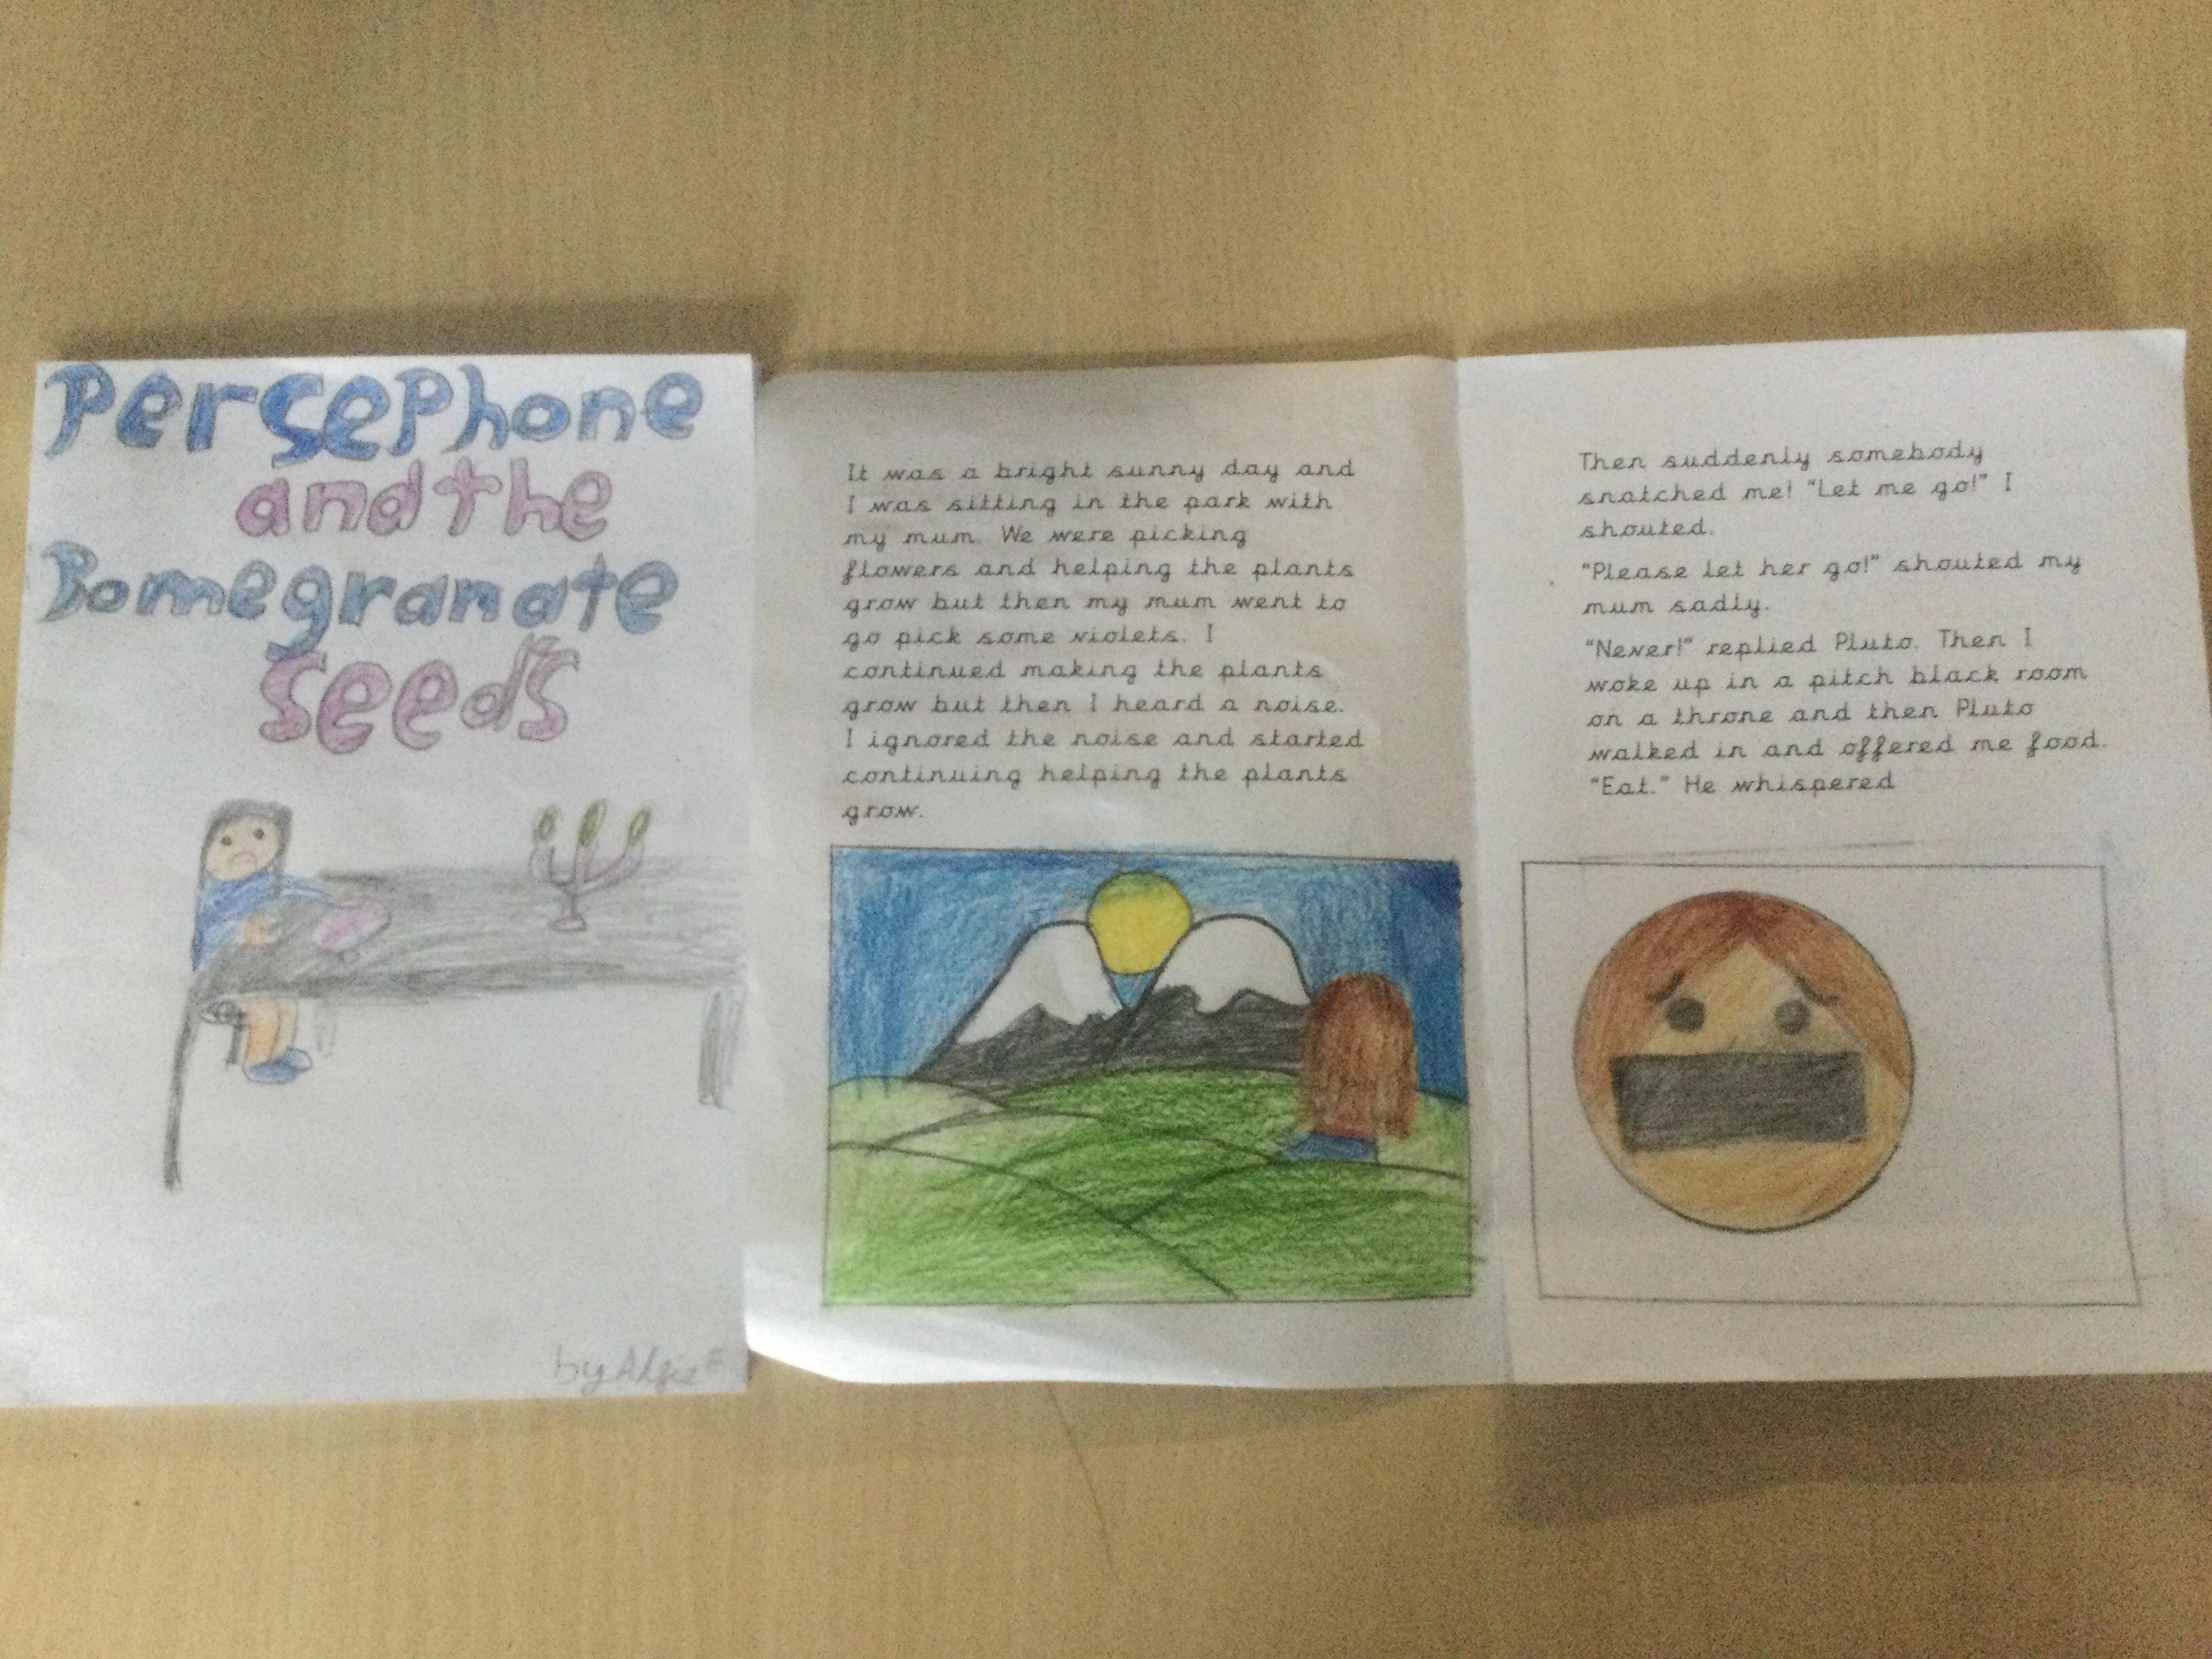 Persephone
and the
Pomegranate
seeds
by Alfie F
It was a bright sunny day and
I was sitting in the park with
my mum. We were picking
flowers and helping the plants
grow but then my mum went to
go pick some violets. I
continued making the plants
grow but then I heard a noise.
I ignored the noise and started
continuing helping the plants
grow.
Then suddenly somebody
snatched me! “Let me go!” I
shouted.
“Please let her go!” shouted my
mum sadly.
“Never!” replied Pluto. Then I
woke up in a pitch black room
on a throne and then Pluto
walked in and offered me food.
“Eat.” He whispered